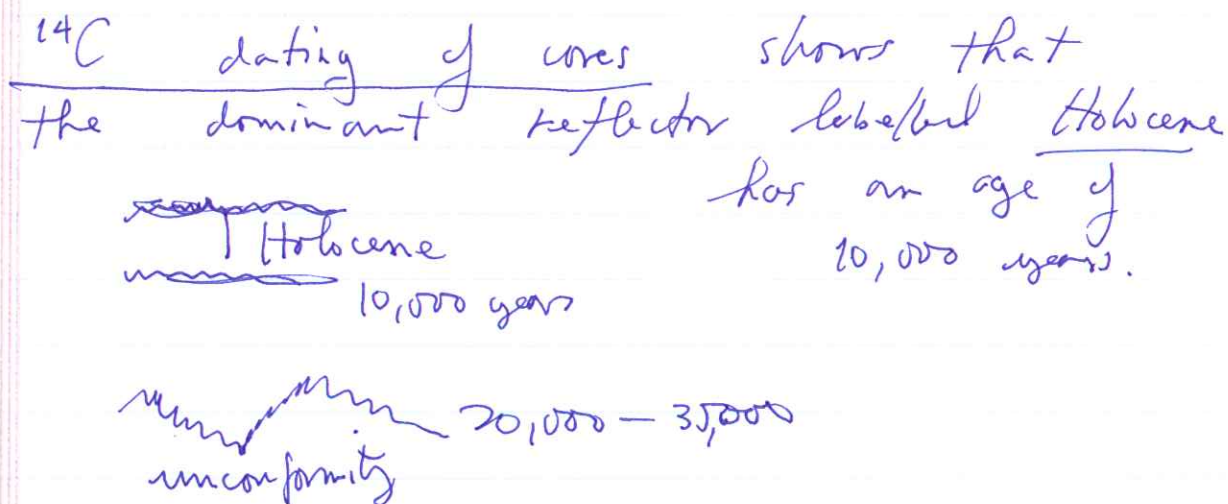 ¹⁴C dating of cores shows that
the dominant reflector labelled Holocene
has an age of
10,000 years.
Holocene
10,000 years
20,000 – 35,000
unconformity